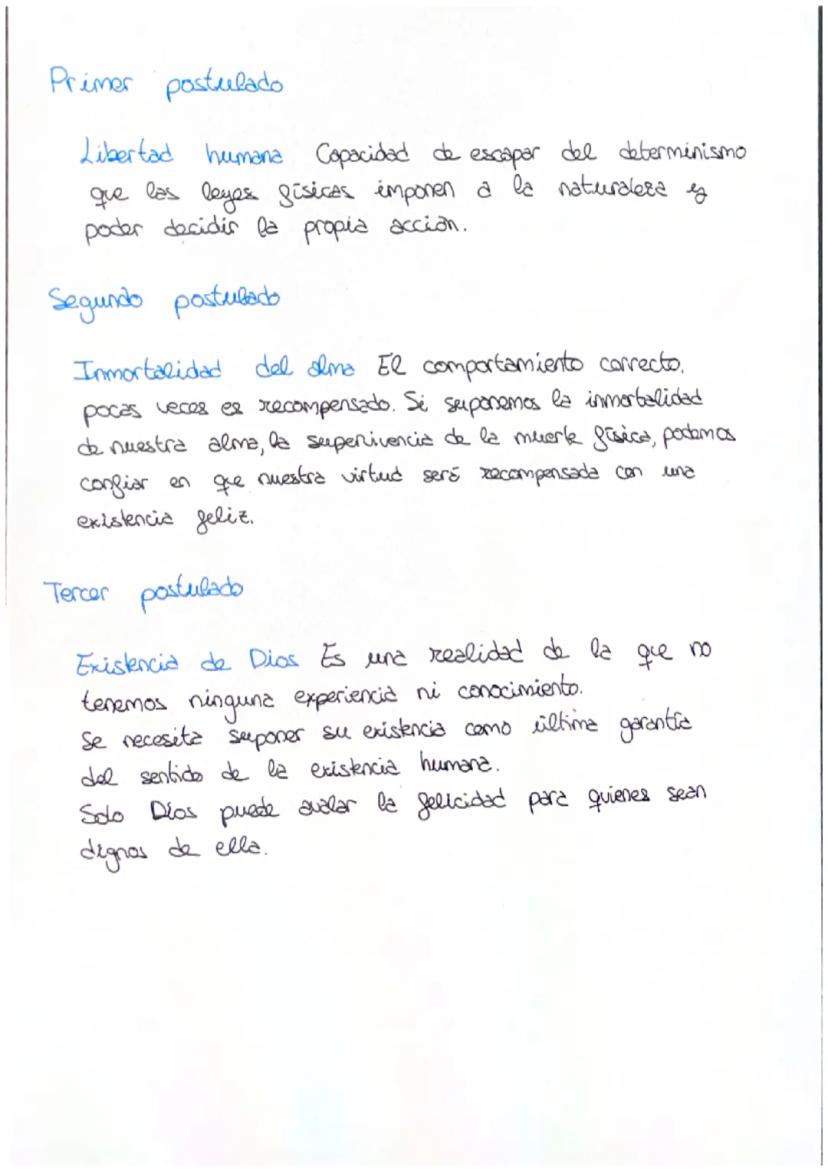 Primer postulado
Libertad humana Capacidad de escapar del determinismo
que las leyes físicas imponen a la naturaleza y
poder decidir la propia acción.
Segundo postulado
Inmortalidad del alma El comportamiento correcto,
pocas veces es recompensado. Si suponemos la inmortalidad
de nuestra alma, la supervivencia de la muerte física, podemos
confiar en que nuestra virtud será recompensada con una
existencia feliz.
Tercer postulado
Existencia de Dios Es una realidad de la que no
tenemos ninguna experiencia ni conocimiento.
Se necesita suponer su existencia como última garantía
del sentido de la existencia humana.
Solo Dios puede avalar la felicidad para quienes sean
dignos de ella.